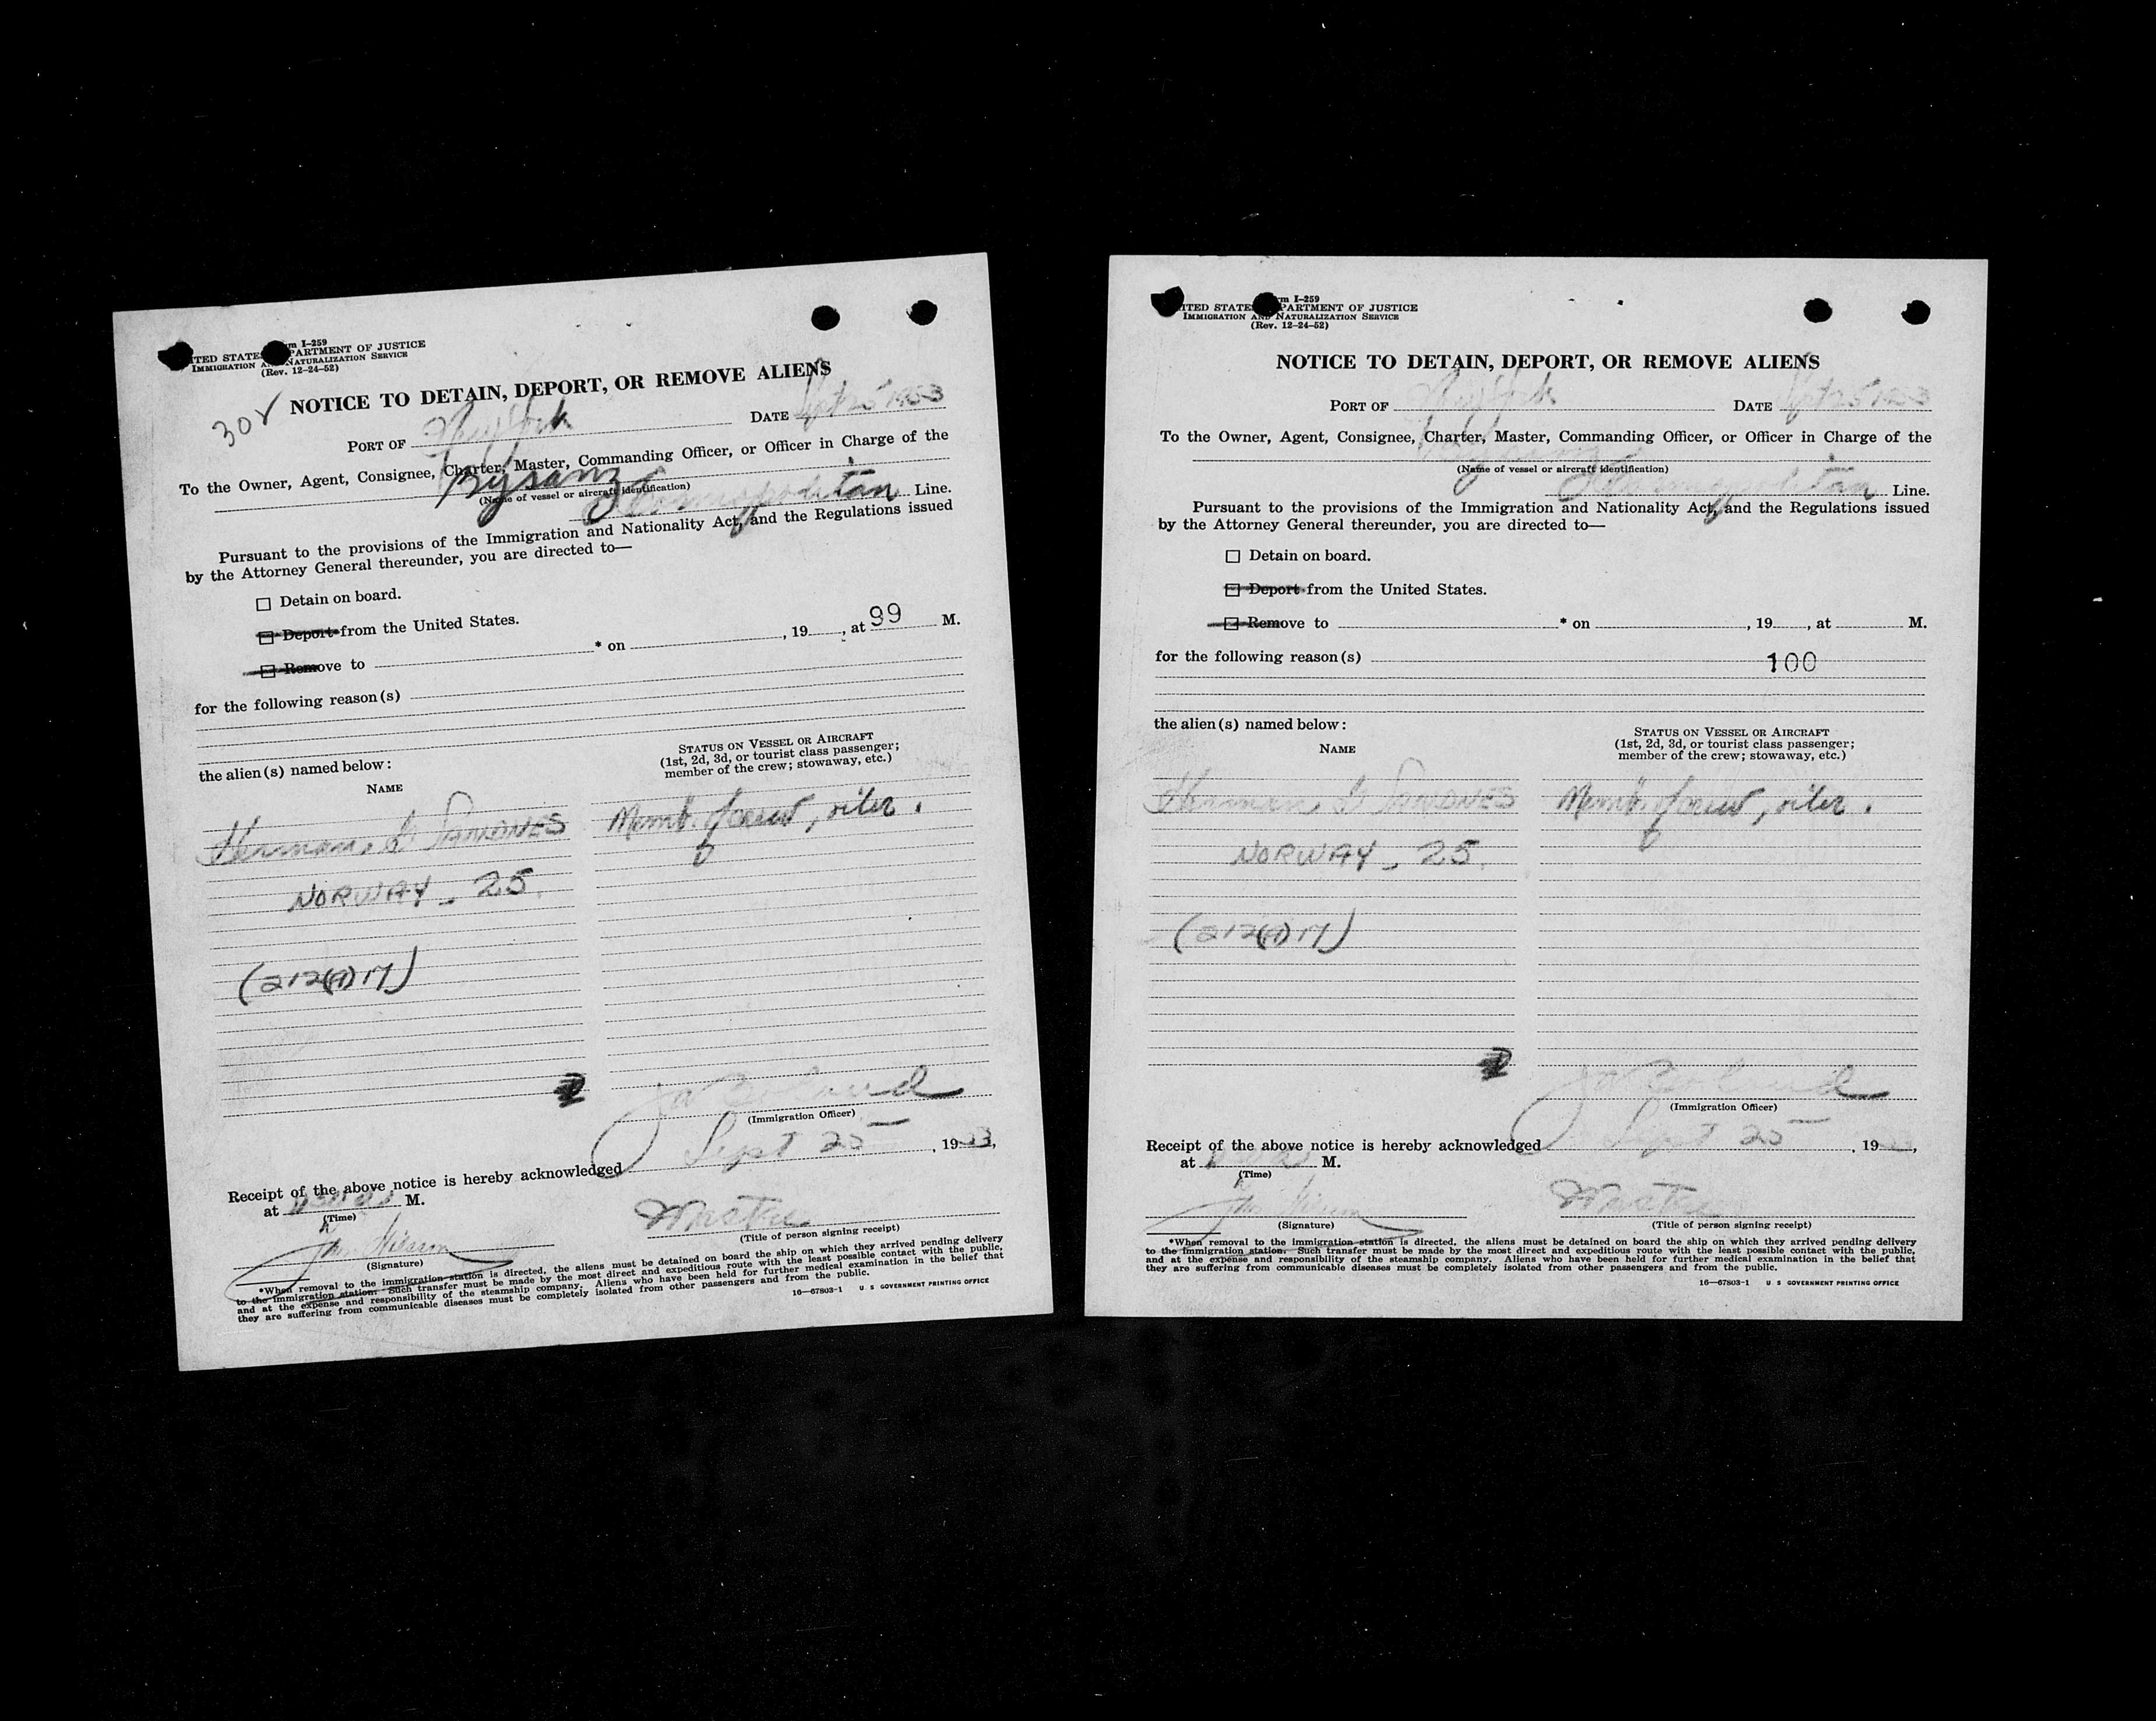 Form I-259
UNITED STATES DEPARTMENT OF JUSTICE
IMMIGRATION AND NATURALIZATION SERVICE
(Rev. 12-24-52)
NOTICE TO DETAIN, DEPORT, OR REMOVE ALIENS
308
PORT OF New York DATE Sept 25 1953
To the Owner, Agent, Consignee, Charter, Master, Commanding Officer, or Officer in Charge of the
Bysanz
(Name of vessel or aircraft identification)
Cosmopolitan Line.
Pursuant to the provisions of the Immigration and Nationality Act, and the Regulations issued
by the Attorney General thereunder, you are directed to—
☐ Detain on board.
☐ Deport from the United States.
☐ Remove to * on , 19 , at 99 M.
for the following reason(s)
the alien(s) named below:
NAME
STATUS ON VESSEL OR AIRCRAFT
(1st, 2d, 3d, or tourist class passenger;
member of the crew; stowaway, etc.)
Herman SANDNES Memb. of crew, oiler.
NORWAY - 25.
(212(A)17)
(Immigration Officer)
Receipt of the above notice is hereby acknowledged Sept 25 , 1953,
at M.
(Time)
(Signature)
Master
(Title of person signing receipt)
*When removal to the immigration station is directed, the aliens must be detained on board the ship on which they arrived pending delivery
to the immigration station. Such transfer must be made by the most direct and expeditious route with the least possible contact with the public,
and at the expense and responsibility of the steamship company. Aliens who have been held for further medical examination in the belief that
they are suffering from communicable diseases must be completely isolated from other passengers and from the public.
16—67803-1 U S GOVERNMENT PRINTING OFFICE
Form I-259
UNITED STATES DEPARTMENT OF JUSTICE
IMMIGRATION AND NATURALIZATION SERVICE
(Rev. 12-24-52)
NOTICE TO DETAIN, DEPORT, OR REMOVE ALIENS
PORT OF New York DATE Sept 25 1953
To the Owner, Agent, Consignee, Charter, Master, Commanding Officer, or Officer in Charge of the
(Name of vessel or aircraft identification)
Cosmopolitan Line.
Pursuant to the provisions of the Immigration and Nationality Act, and the Regulations issued
by the Attorney General thereunder, you are directed to—
☐ Detain on board.
☐ Deport from the United States.
☐ Remove to * on , 19 , at M.
for the following reason(s)
100
the alien(s) named below:
NAME
STATUS ON VESSEL OR AIRCRAFT
(1st, 2d, 3d, or tourist class passenger;
member of the crew; stowaway, etc.)
Herman SANDNES Memb. of crew, oiler.
NORWAY - 25.
(212(A)17)
(Immigration Officer)
Receipt of the above notice is hereby acknowledged Sept 25 , 19 ,
at M.
(Time)
(Signature)
Master
(Title of person signing receipt)
*When removal to the immigration station is directed, the aliens must be detained on board the ship on which they arrived pending delivery
to the immigration station. Such transfer must be made by the most direct and expeditious route with the least possible contact with the public,
and at the expense and responsibility of the steamship company. Aliens who have been held for further medical examination in the belief that
they are suffering from communicable diseases must be completely isolated from other passengers and from the public.
16—67803-1 U S GOVERNMENT PRINTING OFFICE